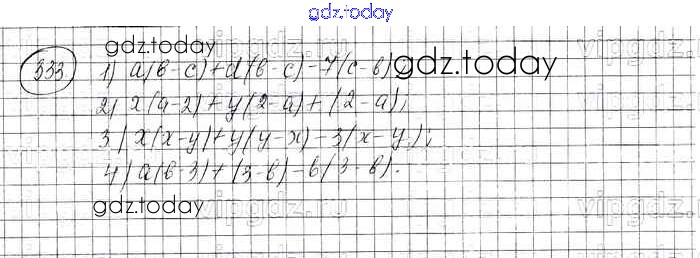 gdz.today
gdz.today vipgdz.ru vipgdz.ru
333 1) a(b-c)+d(b-c)-7(c-b); gdz.today
2) x(a-2)+y(2-a)+(2-a);
3) x(x-y)+y(y-x)-3(x-y);
4) a(b-3)+(3-b)-6(3-b).
gdz.today vipgdz.ru vipgdz.ru